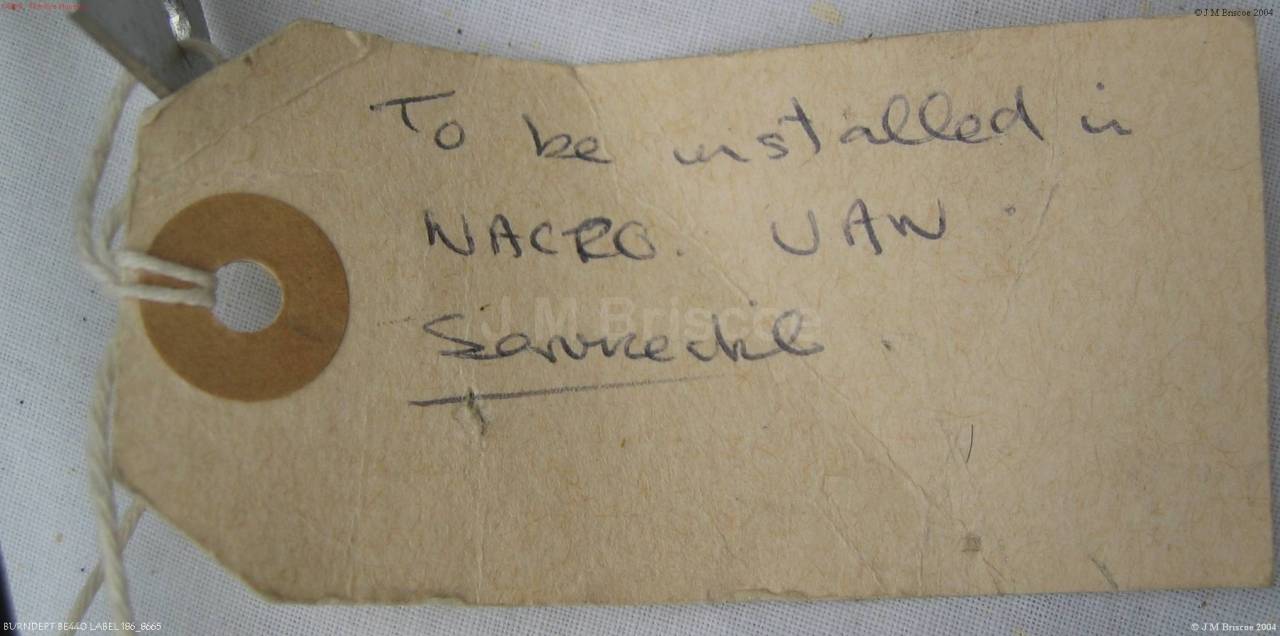 © J M Briscoe 2004
To be installed in
NACRO. VAN
J M Briscoe
BURNDEPT BE440 LABEL 186_8665
© J M Briscoe 2004